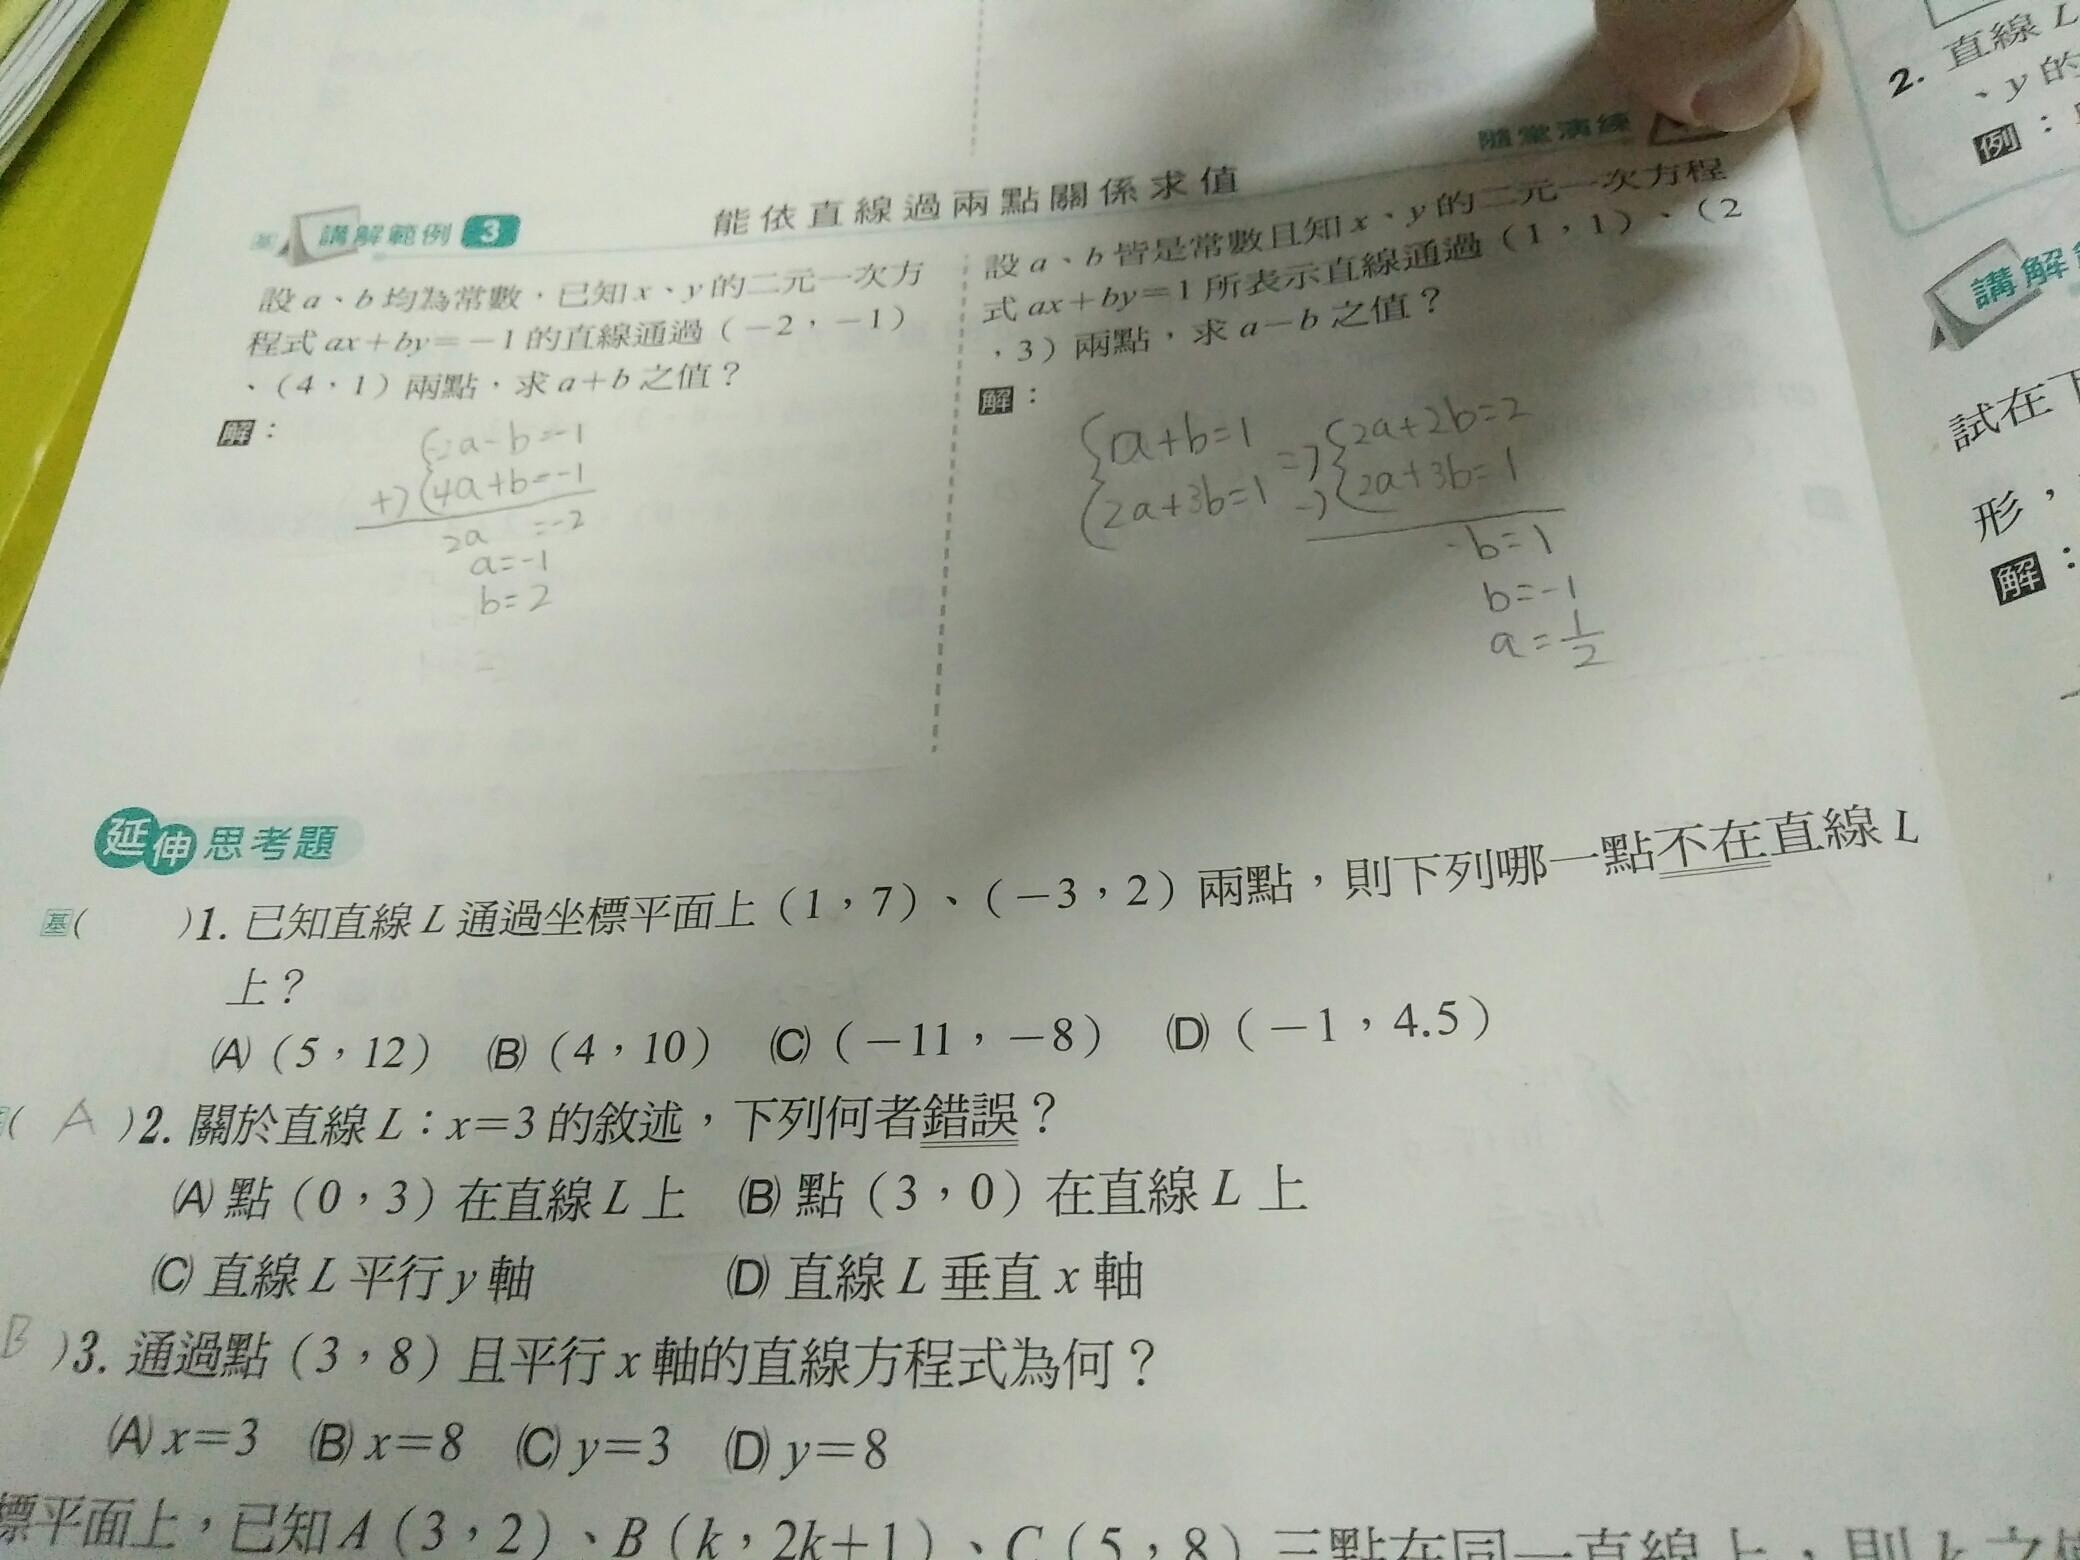 能依直線過兩點關係求值
隨堂演練
基 講解範例 3
設 a、b 均為常數，已知 x、y 的二元一次方
程式 ax+by=-1 的直線通過（-2，-1）
、（4，1）兩點，求 a+b 之值？
解：
{-2a-b=-1
+) {4a+b=-1
2a =-2
a=-1
b=2
設 a、b 皆是常數且知 x、y 的二元一次方程
式 ax+by=1 所表示直線通過（1，1）、（2
，3）兩點，求 a-b 之值？
解：
{1a+b=1 => {2a+2b=2
{2a+3b=1 -) {2a+3b=1
-b=1
b=-1
a=1/2
延伸 思考題
基（ ）1. 已知直線 L 通過坐標平面上（1，7）、（-3，2）兩點，則下列哪一點不在直線 L
上？
(A)（5，12） (B)（4，10） (C)（-11，-8） (D)（-1，4.5）
（ A ）2. 關於直線 L：x=3 的敘述，下列何者錯誤？
(A) 點（0，3）在直線 L 上 (B) 點（3，0）在直線 L 上
(C) 直線 L 平行 y 軸 (D) 直線 L 垂直 x 軸
B ）3. 通過點（3，8）且平行 x 軸的直線方程式為何？
(A) x=3 (B) x=8 (C) y=3 (D) y=8
標平面上，已知 A（3，2）、B（k，2k+1）、C（5，8）三點在同一直線上，則 k 之
2. 直線 L
、y 的
例：
講解
試在下
形，
解：